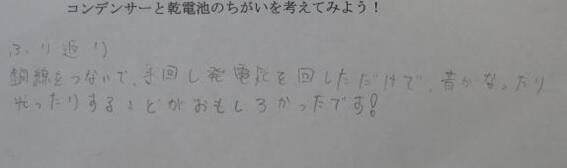 コンデンサーと乾電池のちがいを考えてみよう！
ふり返り
銅線をつないで、手回し発電気を回しただけで、音がなったり
光ったりすることがおもしろかったです!